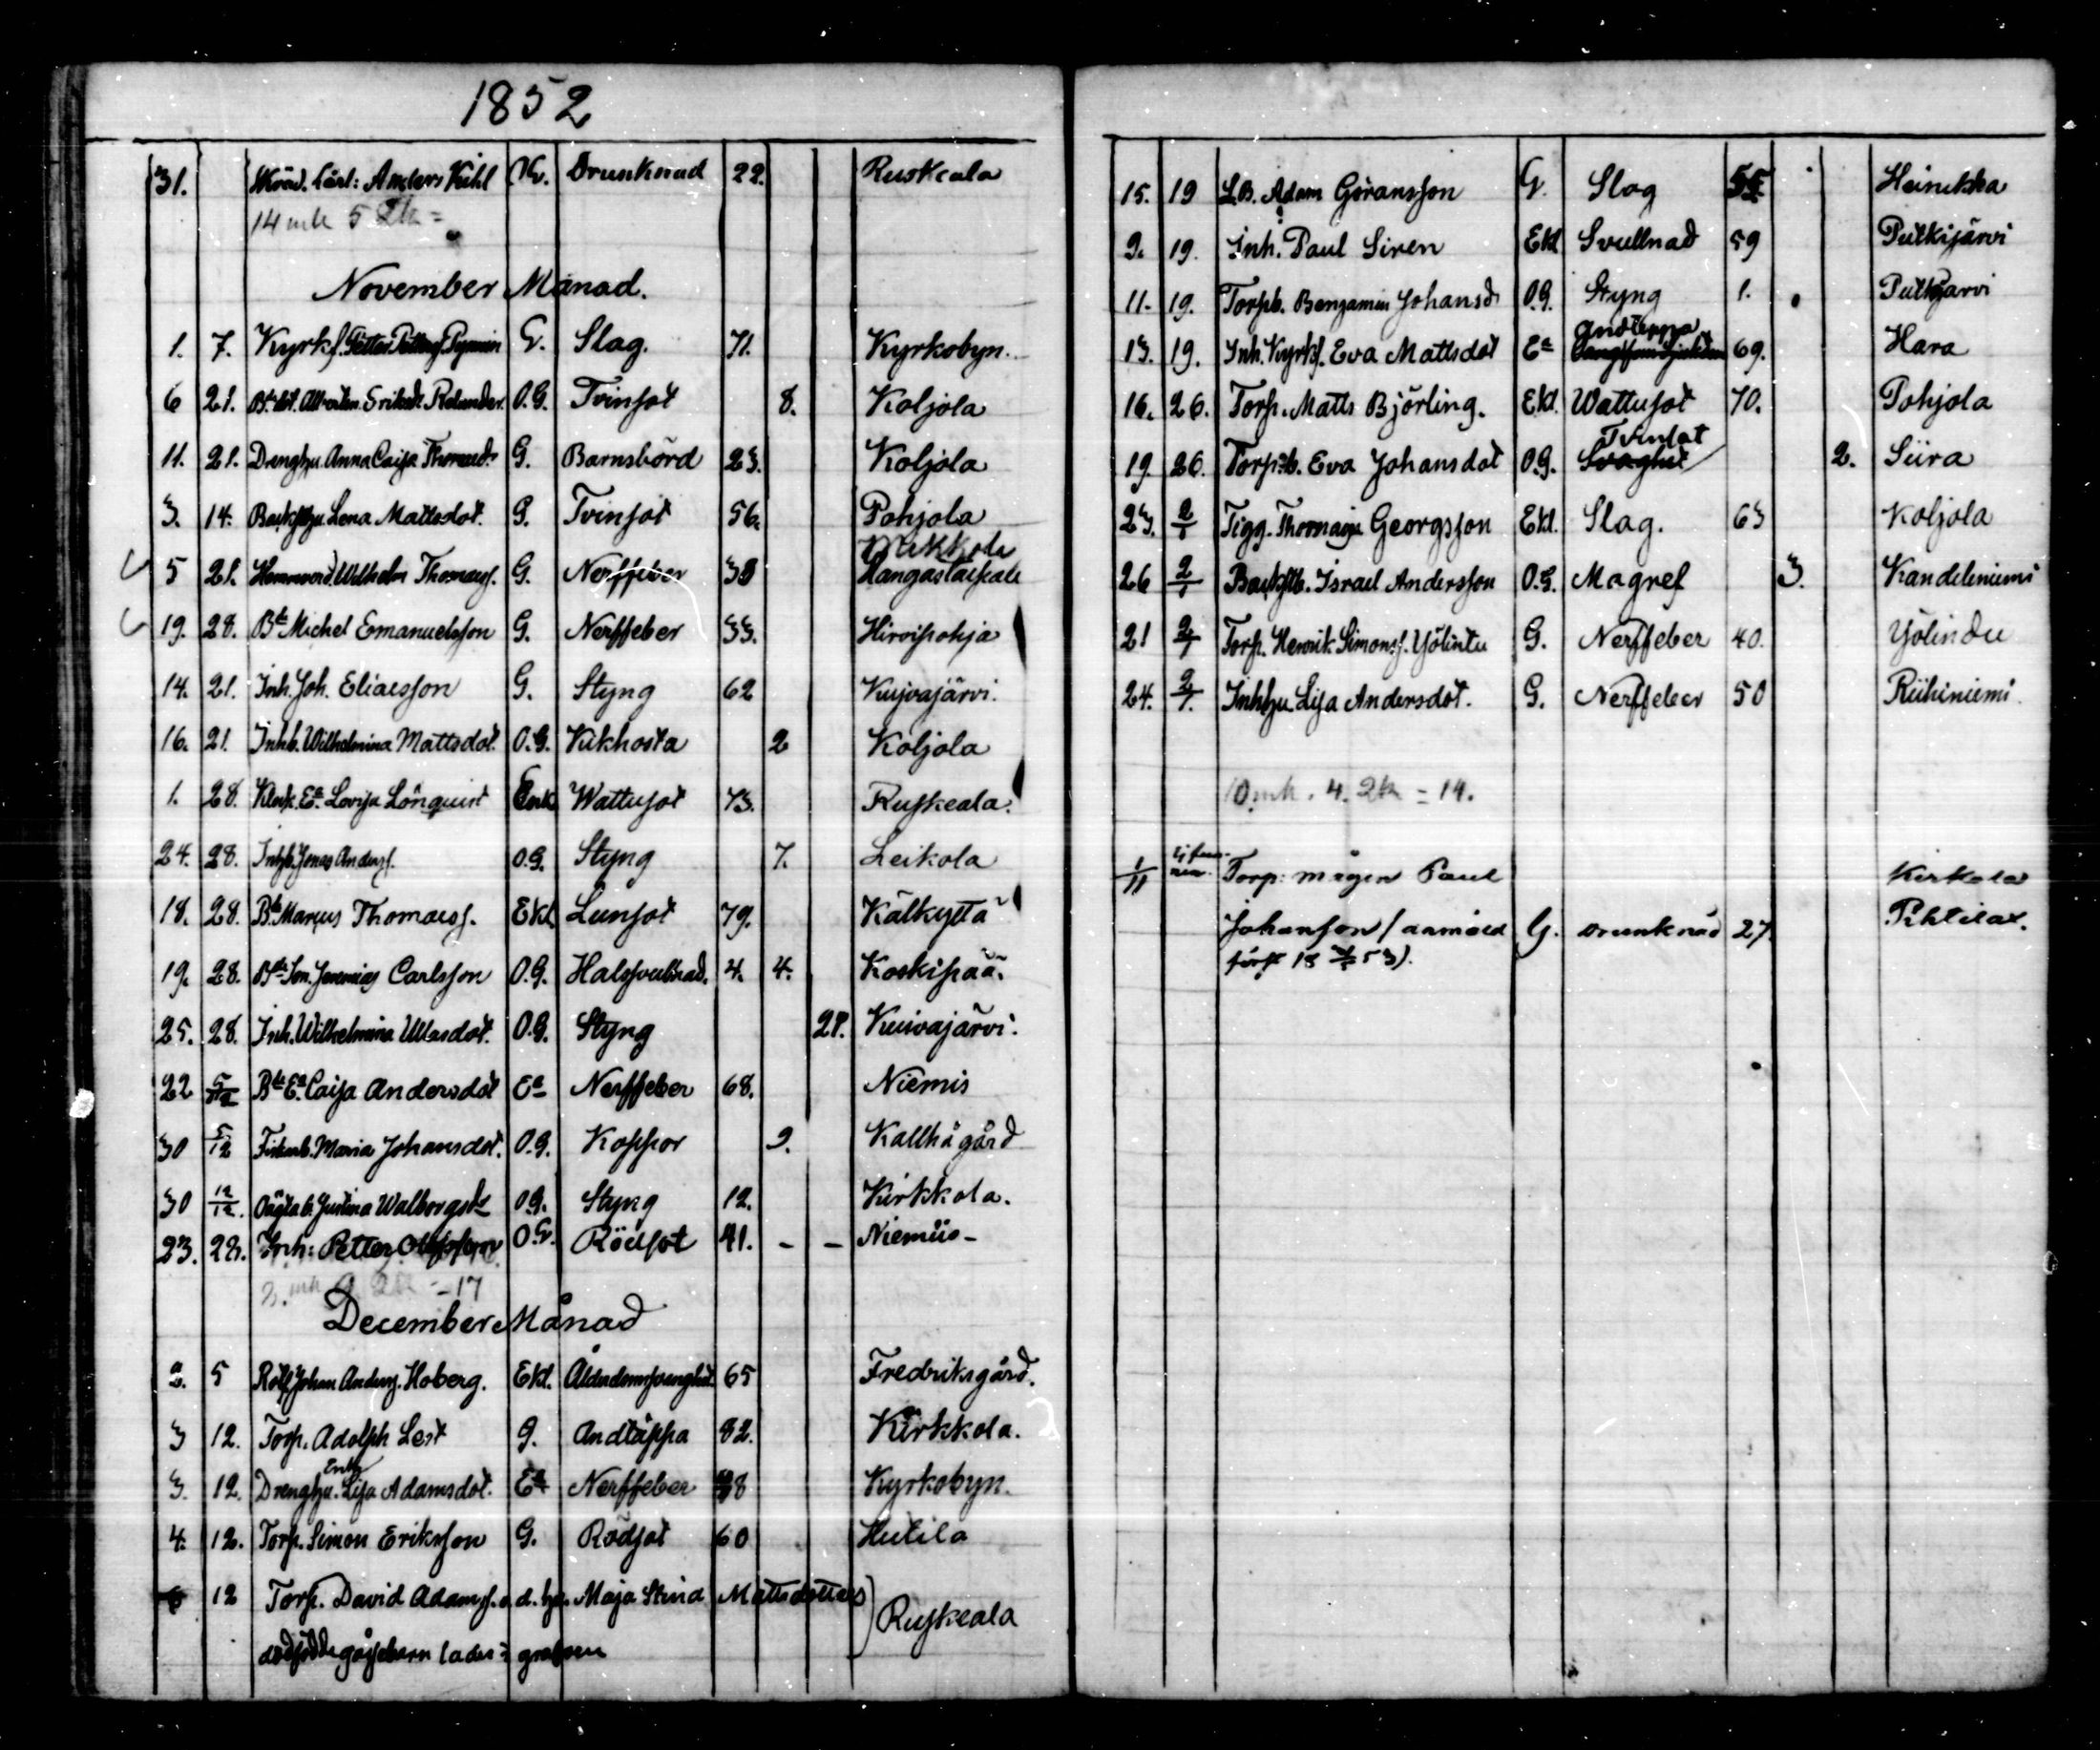 1852
31. Anders Kihl G. Drunknad 22. Ruskeala
14 mk 5
November Månad.
1. 7. Kyrkf. Petter G. Slag. 71. Kyrkobyn.
6 21. O.G. Tvinsot 8. Koljola
11. 21. Drenghu. Anna Caisa G. Barnsbörd 23. Koljola
3. 14. Lena Mattsdot. G. Tvinsot 56. Pohjola
Mikkola
5 21. Wilhelm Thomass. G. Nerffeber 38
19. 28. Bde Michel Emanuelsson G. Nerffeber 33. Hirvipohja
14. 21. Inh. Joh. Eliaesson G. Styng 62 Kuivajärvi.
16. 21. Inhb. Wilhelmina Mattsdot. O.G. Kikhosta 2 Koljola
1. 28. Ea. Lovisa Lönquist Enk Wattusot 73. Ruskeala.
24. 28. Inhb. Jonas Anderss. O.G. Styng 7. Leikola
18. 28. Bde Marcus Thomaess. Ekl. Lunsot 79. Kälkyttä
19. 28. Bde Son. Jeremias Carlsson O.G. Halssvullnad. 4. 4. Koskipää.
25. 28. Inh. Wilhelmina Ullasdot. O.G. Styng 28. Kuivajärvi.
22 5/12 Bde Ea. Caisa Andersdot Ea Nerffeber 68. Niemis
30 5/12 Maria Johansdot. O.G. Koppor 9. Kallhågård
30 12/12. Justina Walborgsdr O.G. Styng 12. Kirkkola.
23. 28. Inh: Petter O.G. Rödsot 41. - - Niemiis-
- 17
December Månad
2. 5 Johan Anderss. Hoberg. Ekl. Ålderdomssvaghet 65 Fredriksgård.
3 12. Torp. Adolph Lest G. Andtäppa 82. Kirkkola.
Enk
3. 12. Drenghu. Lisa Adamsdot. Ea Nerffeber 8 Kyrkobyn.
4. 12. Torp. Simon Eriksson G. Rödsot 60 Hutila
6 12 Torp. David Adamss. o. d. hu. Maja Stina Mattsdotters
dödfödde gossebarn lades i grafven Ruskeala
15. 19 L.B. Adam Göransson G. Slag 55. Heinikka
9. 19. Inh. Paul Siren Ekl Svullnad 59 Pulkijärvi
11. 19. Torpb. Bengamin Johansd O.G. Styng 1. Pulkijarvi
Andteppa
13. 19. Inh. Kyrkf. Eva Mattsdot Ea 69. Hara
16. 26. Torp. Matts Björling. Ekl. Wattusot 70. Pohjola
Tvinsot
19. 26. Torp.b. Eva Johansdot O.G. Svaghet 2. Siira
23. 2/1 Tigg. Georgsson Ekl. Slag. 63 Koljola
26 2/1 Israel Andersson O.G. Magref 3. Kandeliniemi
21 2/1 Torp. Henrik Simonss. Yölintu G. Nerffeber 40. Yölindu
24. 2/1. Inhhu. Lisa Andersdot. G. Nerffeber 50 Riihiniemi.
10 mk. 4. 2k = 14.
1/11 Torp: mågen Paul Kirkola
Johansson / anmäld G. drunknad 27. Pihtilax.
först 18 53).